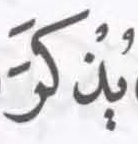 يُذْكَرَ